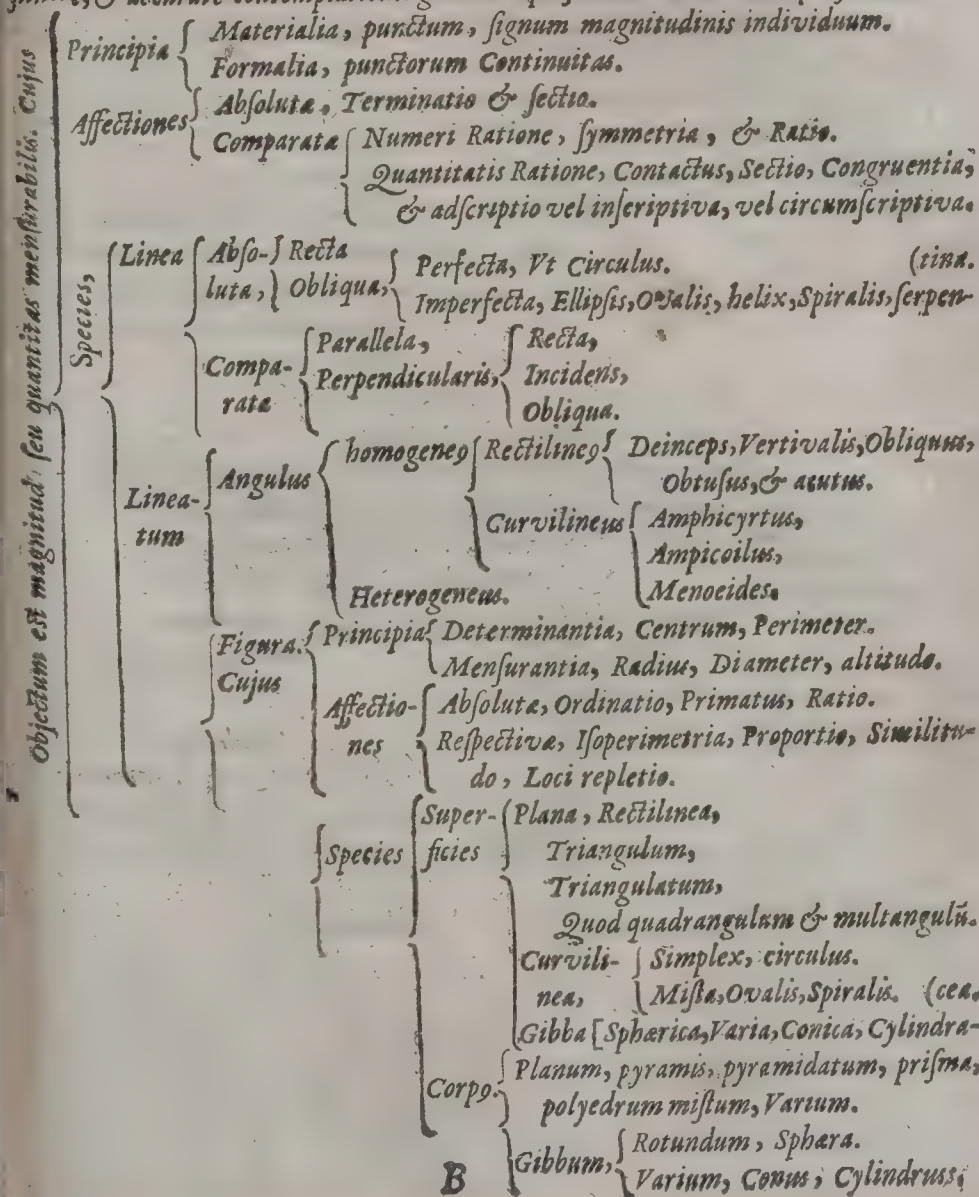 Objectum est magnitud. seu quantitas mensurabilis. Cujus
Principia
Materialia, punctum, signum magnitudinis individuum.
Formalia, punctorum Continuitas.
Affectiones
Absolutæ, Terminatio & sectio.
Comparatæ
Numeri Ratione, symmetria, & Ratio.
Quantitatis Ratione, Contactus, Sectio, Congruentia,
& adscriptio vel inscriptiva, vel circumscriptiva.
Species,
Linea
Abso-
luta,
Recta
Obliqua,
Perfecta, Vt Circulus.
(tina.
Imperfecta, Ellipsis, Ovalis, helix, Spiralis, serpen-
Compa-
ratæ
Parallela,
Perpendicularis,
Recta,
Incidens,
Obliqua.
Linea-
tum
Angulus
homogene9
Rectiline9
Deinceps, Vertivalis, Obliquus,
Obtusus, & acutus.
Curvilineus
Amphicyrtus,
Ampicoilus,
Menoeides.
Heterogeneus.
Figura.
Cujus
Principia
Determinantia, Centrum, Perimeter.
Mensurantia, Radius, Diameter, altitudo.
Affectio-
nes
Absolutæ, Ordinatio, Primatus, Ratio.
Respectivæ, Isoperimetria, Proportio, Similitu-
do, Loci repletio.
Species
Super-
ficies
Plana, Rectilinea,
Triangulum,
Triangulatum,
Quod quadrangulum & multangulū.
Curvili-
nea,
Simplex, circulus.
Mista, Ovalis, Spiralis. (cea.
Gibba [Sphærica, Varia, Conica, Cylindra-
Corp9.
Planum, pyramis, pyramidatum, prisma,
polyedrum mistum, Varium.
Gibbum,
Rotundum, Sphæra.
Varium, Conus, Cylindruss,
B